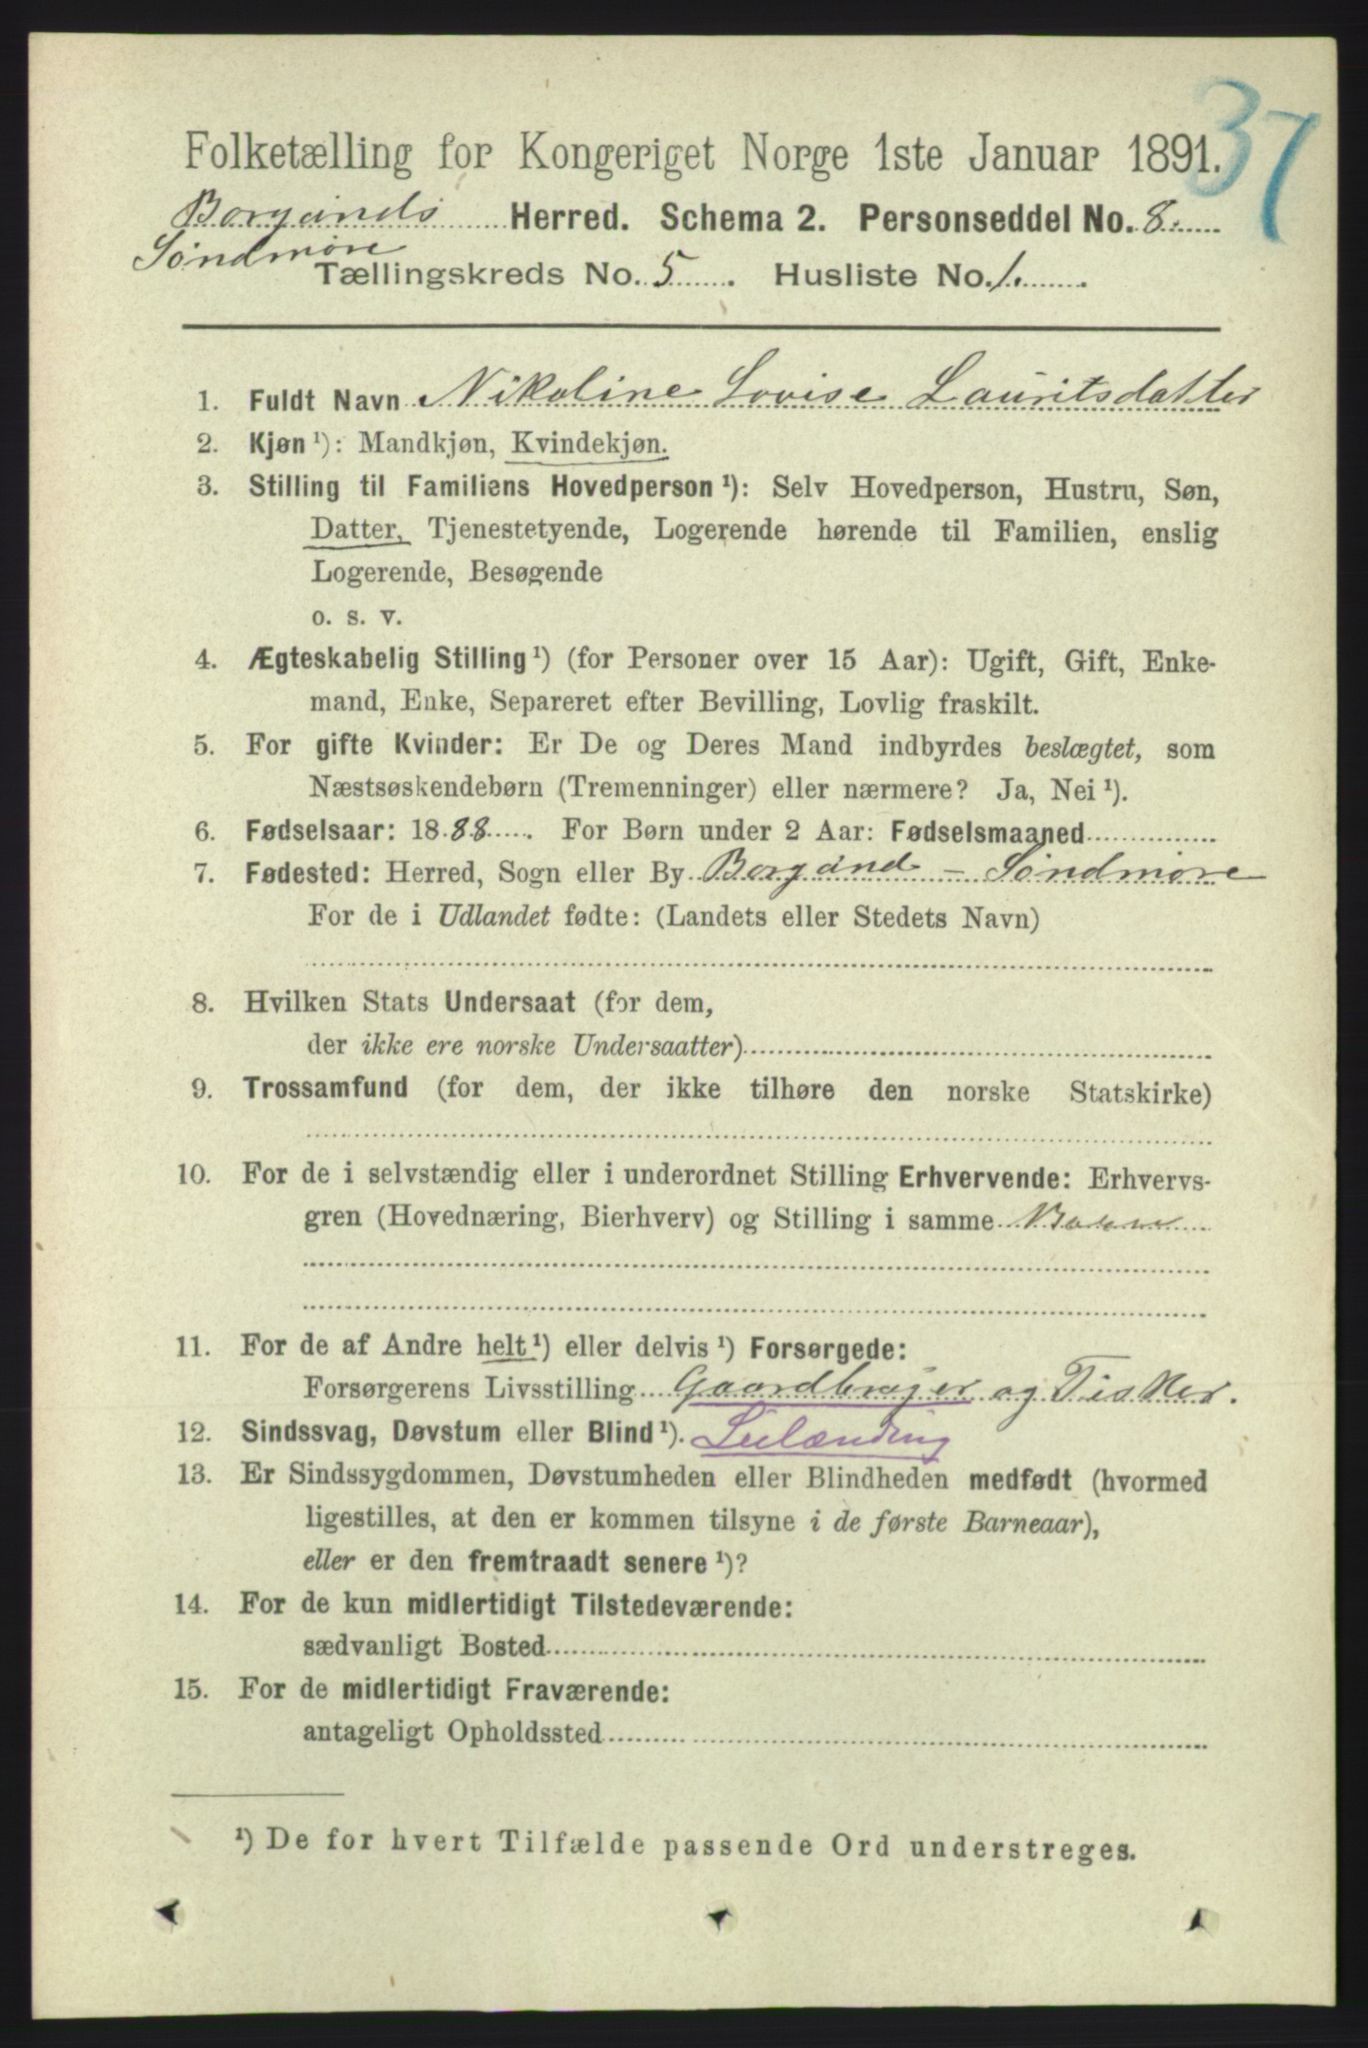 37
Folketælling for Kongeriget Norge 1ste Januar 1891.
Borgunds Herred. Schema 2. Personseddel No. 8.
Søndmøre
Tællingskreds No. 5. Husliste No. 1.
1. Fuldt Navn Nikoline Lovise Lauritsdatter
2. Kjøn ¹): Mandkjøn, Kvindekjøn.
3. Stilling til Familiens Hovedperson ¹): Selv Hovedperson, Hustru, Søn,
Datter, Tjenestetyende, Logerende hørende til Familien, enslig
Logerende, Besøgende
o. s. v.
4. Ægteskabelig Stilling ¹) (for Personer over 15 Aar): Ugift, Gift, Enke-
mand, Enke, Separeret efter Bevilling, Lovlig fraskilt.
5. For gifte Kvinder: Er De og Deres Mand indbyrdes beslægtet, som
Næstsøskendebørn (Tremenninger) eller nærmere? Ja, Nei ¹).
6. Fødselsaar: 1888. For Børn under 2 Aar: Fødselsmaaned
7. Fødested: Herred, Sogn eller By Borgund - Søndmøre
For de i Udlandet fødte: (Landets eller Stedets Navn)
8. Hvilken Stats Undersaat (for dem,
der ikke ere norske Undersaatter)
9. Trossamfund (for dem, der ikke tilhøre den norske Statskirke)
10. For de i selvstændig eller i underordnet Stilling Erhvervende: Erhvervs-
gren (Hovednæring, Bierhverv) og Stilling i samme
11. For de af Andre helt ¹) eller delvis ¹) Forsørgede:
Forsørgerens Livsstilling Gaardbruger og Fisker.
12. Sindssvag, Døvstum eller Blind ¹). Leilænding
13. Er Sindssygdommen, Døvstumheden eller Blindheden medfødt (hvormed
ligestilles, at den er kommen tilsyne i de første Barneaar),
eller er den fremtraadt senere ¹)?
14. For de kun midlertidigt Tilstedeværende:
sædvanligt Bosted
15. For de midlertidigt Fraværende:
antageligt Opholdssted
¹) De for hvert Tilfælde passende Ord understreges.